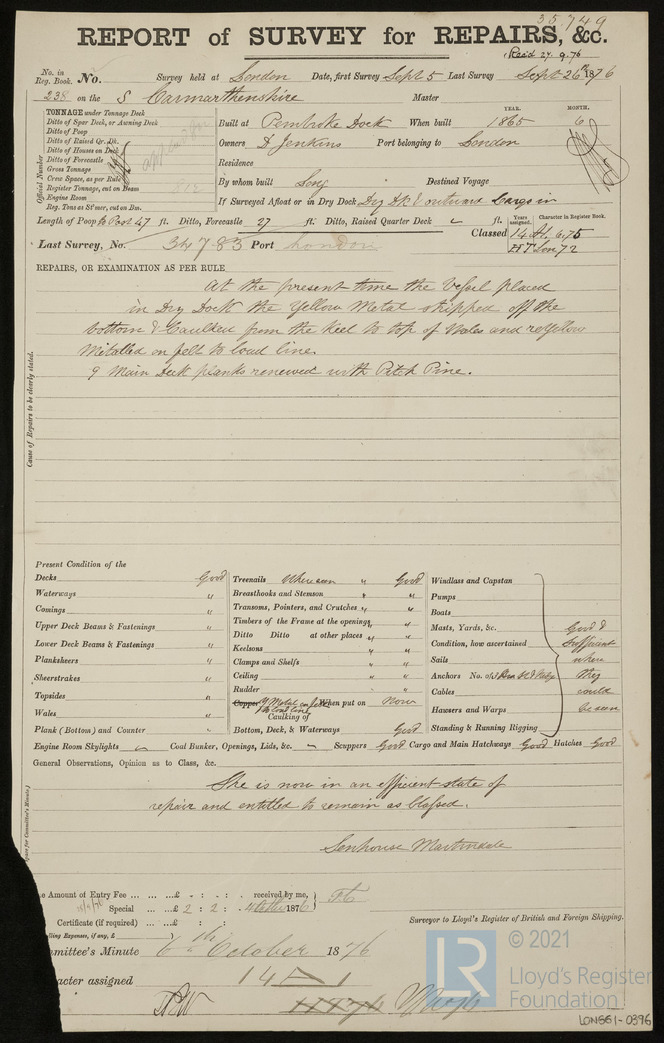 35,749
REPORT of SURVEY for REPAIRS, &c.
Rec'd 27.9.76
No. in Reg. Book. No. Survey held at London Date, first Survey Sept 5 Last Survey Sept 26th 1876
238 on the S Carmarthenshire Master
TONNAGE under Tonnage Deck
Ditto of Spar Deck, or Awning Deck
Ditto of Poop
Ditto of Raised Qr. Dk.
Ditto of Houses on Deck
Ditto of Forecastle
Gross Tonnage
Crew Space, as per Rule
Register Tonnage, cut on Beam 812
Engine Room
Reg. Tons as St'mer, cut on Bm.
Official Number
YEAR. MONTH.
Built at Pembroke Dock When built 1865 6
Owners D Jenkins Port belonging to London
Residence
By whom built Long Destined Voyage
If Surveyed Afloat or in Dry Dock Dry Dk & outward Cargo in
Length of Poop to Post 47 ft. Ditto, Forecastle 27 ft. Ditto, Raised Quarter Deck ft.
Years assigned. Character in Register Book.
Classed 14 A1. 6.75
HT Lon 72
Last Survey, No. 34783 Port London
REPAIRS, OR EXAMINATION AS PER RULE
At the present time the Vessel placed
in Dry Dock the Yellow Metal stripped off the
bottom & Caulked from the Keel to top of Wales and reYellow
Metalled on felt to load line.
9 Main Deck planks renewed with Pitch Pine.
Cause of Repairs to be clearly stated.
Present Condition of the
Decks Good
Waterways "
Comings "
Upper Deck Beams & Fastenings "
Lower Deck Beams & Fastenings "
Planksheers "
Sheerstrakes "
Topsides "
Wales "
Plank (Bottom) and Counter "
Treenails Where seen " Good
Breasthooks and Stemson " "
Transoms, Pointers, and Crutches " "
Timbers of the Frame at the openings " "
Ditto Ditto at other places " "
Keelsons " "
Clamps and Shelfs " "
Ceiling " "
Rudder " "
Copper Y Metal on felt to load line When put on Now
Caulking of
Bottom, Deck, & Waterways Good
Windlass and Capstan
Pumps
Boats
Masts, Yards, &c.
Condition, how ascertained
Sails
Anchors No. of
Cables
Hawsers and Warps
Standing & Running Rigging
Good &
sufficient
where
they
could
be seen
Engine Room Skylights Coal Bunker, Openings, Lids, &c. Scuppers Good Cargo and Main Hatchways Good Hatches Good
General Observations, Opinion as to Class, &c.
She is now in an efficient state of
repair and entitled to remain as Classed.
Senhouse Martindale
Surveyor to Lloyd's Register of British and Foreign Shipping.
e Amount of Entry Fee ... ... £ : : received by me,
Special ... ... £ 2 : 2 : 4 October 1876
Certificate (if required) ... £ : :
lling Expenses, if any, £
mmittee's Minute 6th October 1876
racter assigned 14 A 1
© 2021
LR
Lloyd's Register
Foundation
LON551-0396